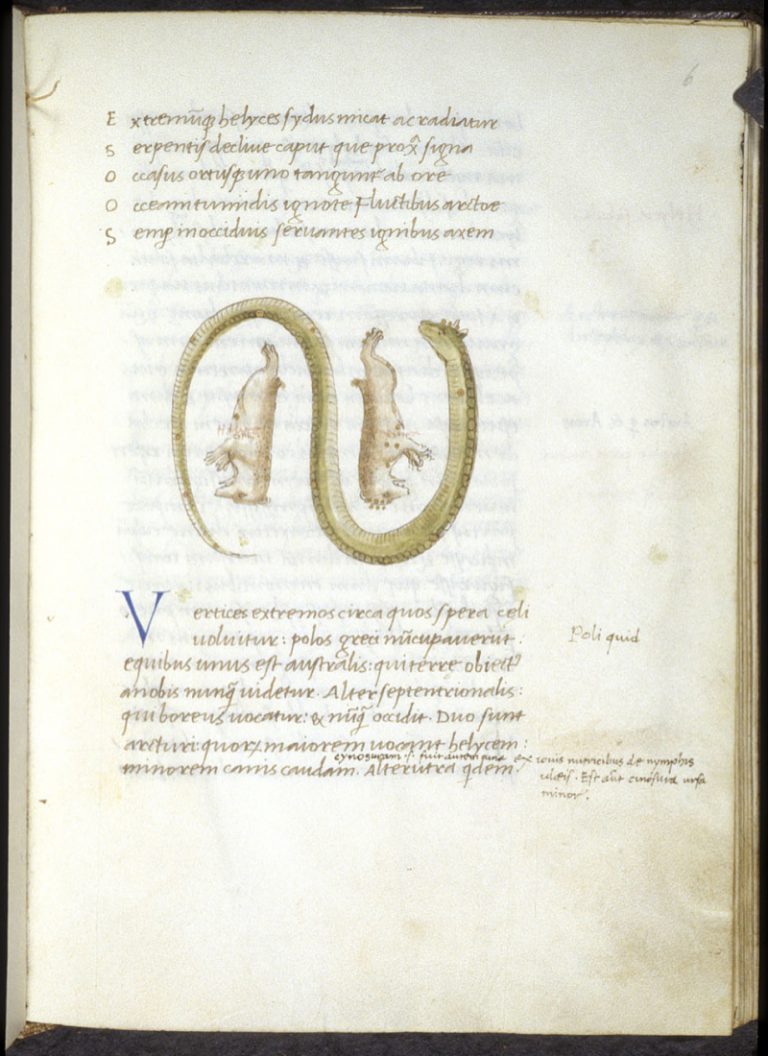 6
Extremūq helyces sydus micat ac radiatur
Serpentis declive caput que prox̄ signa
Occasus ortusq uno tangunt ab ore
Occeani tumidis ignote Fluctibus arctoe
Semp inocciduis servantes ignibus axem
Vertices extremos circa quos spera celi
volvitur: polos greci nūcupaverūt:
equibus unus est australis: qui terre obiectu
anobis nunq̄ videtur. Alter septentrionalis:
qui boreus vocatur: & nūq̄ occidit. Duo sunt
arcturi: quorꝝ maiorem vocant helycem:
minorem canis caudam. Alterutra qdem
Poli quid
cynosuram .i. fuit autem una ex iovis nutricibus de nymphis
Est aūt cinosura ursa
minor.